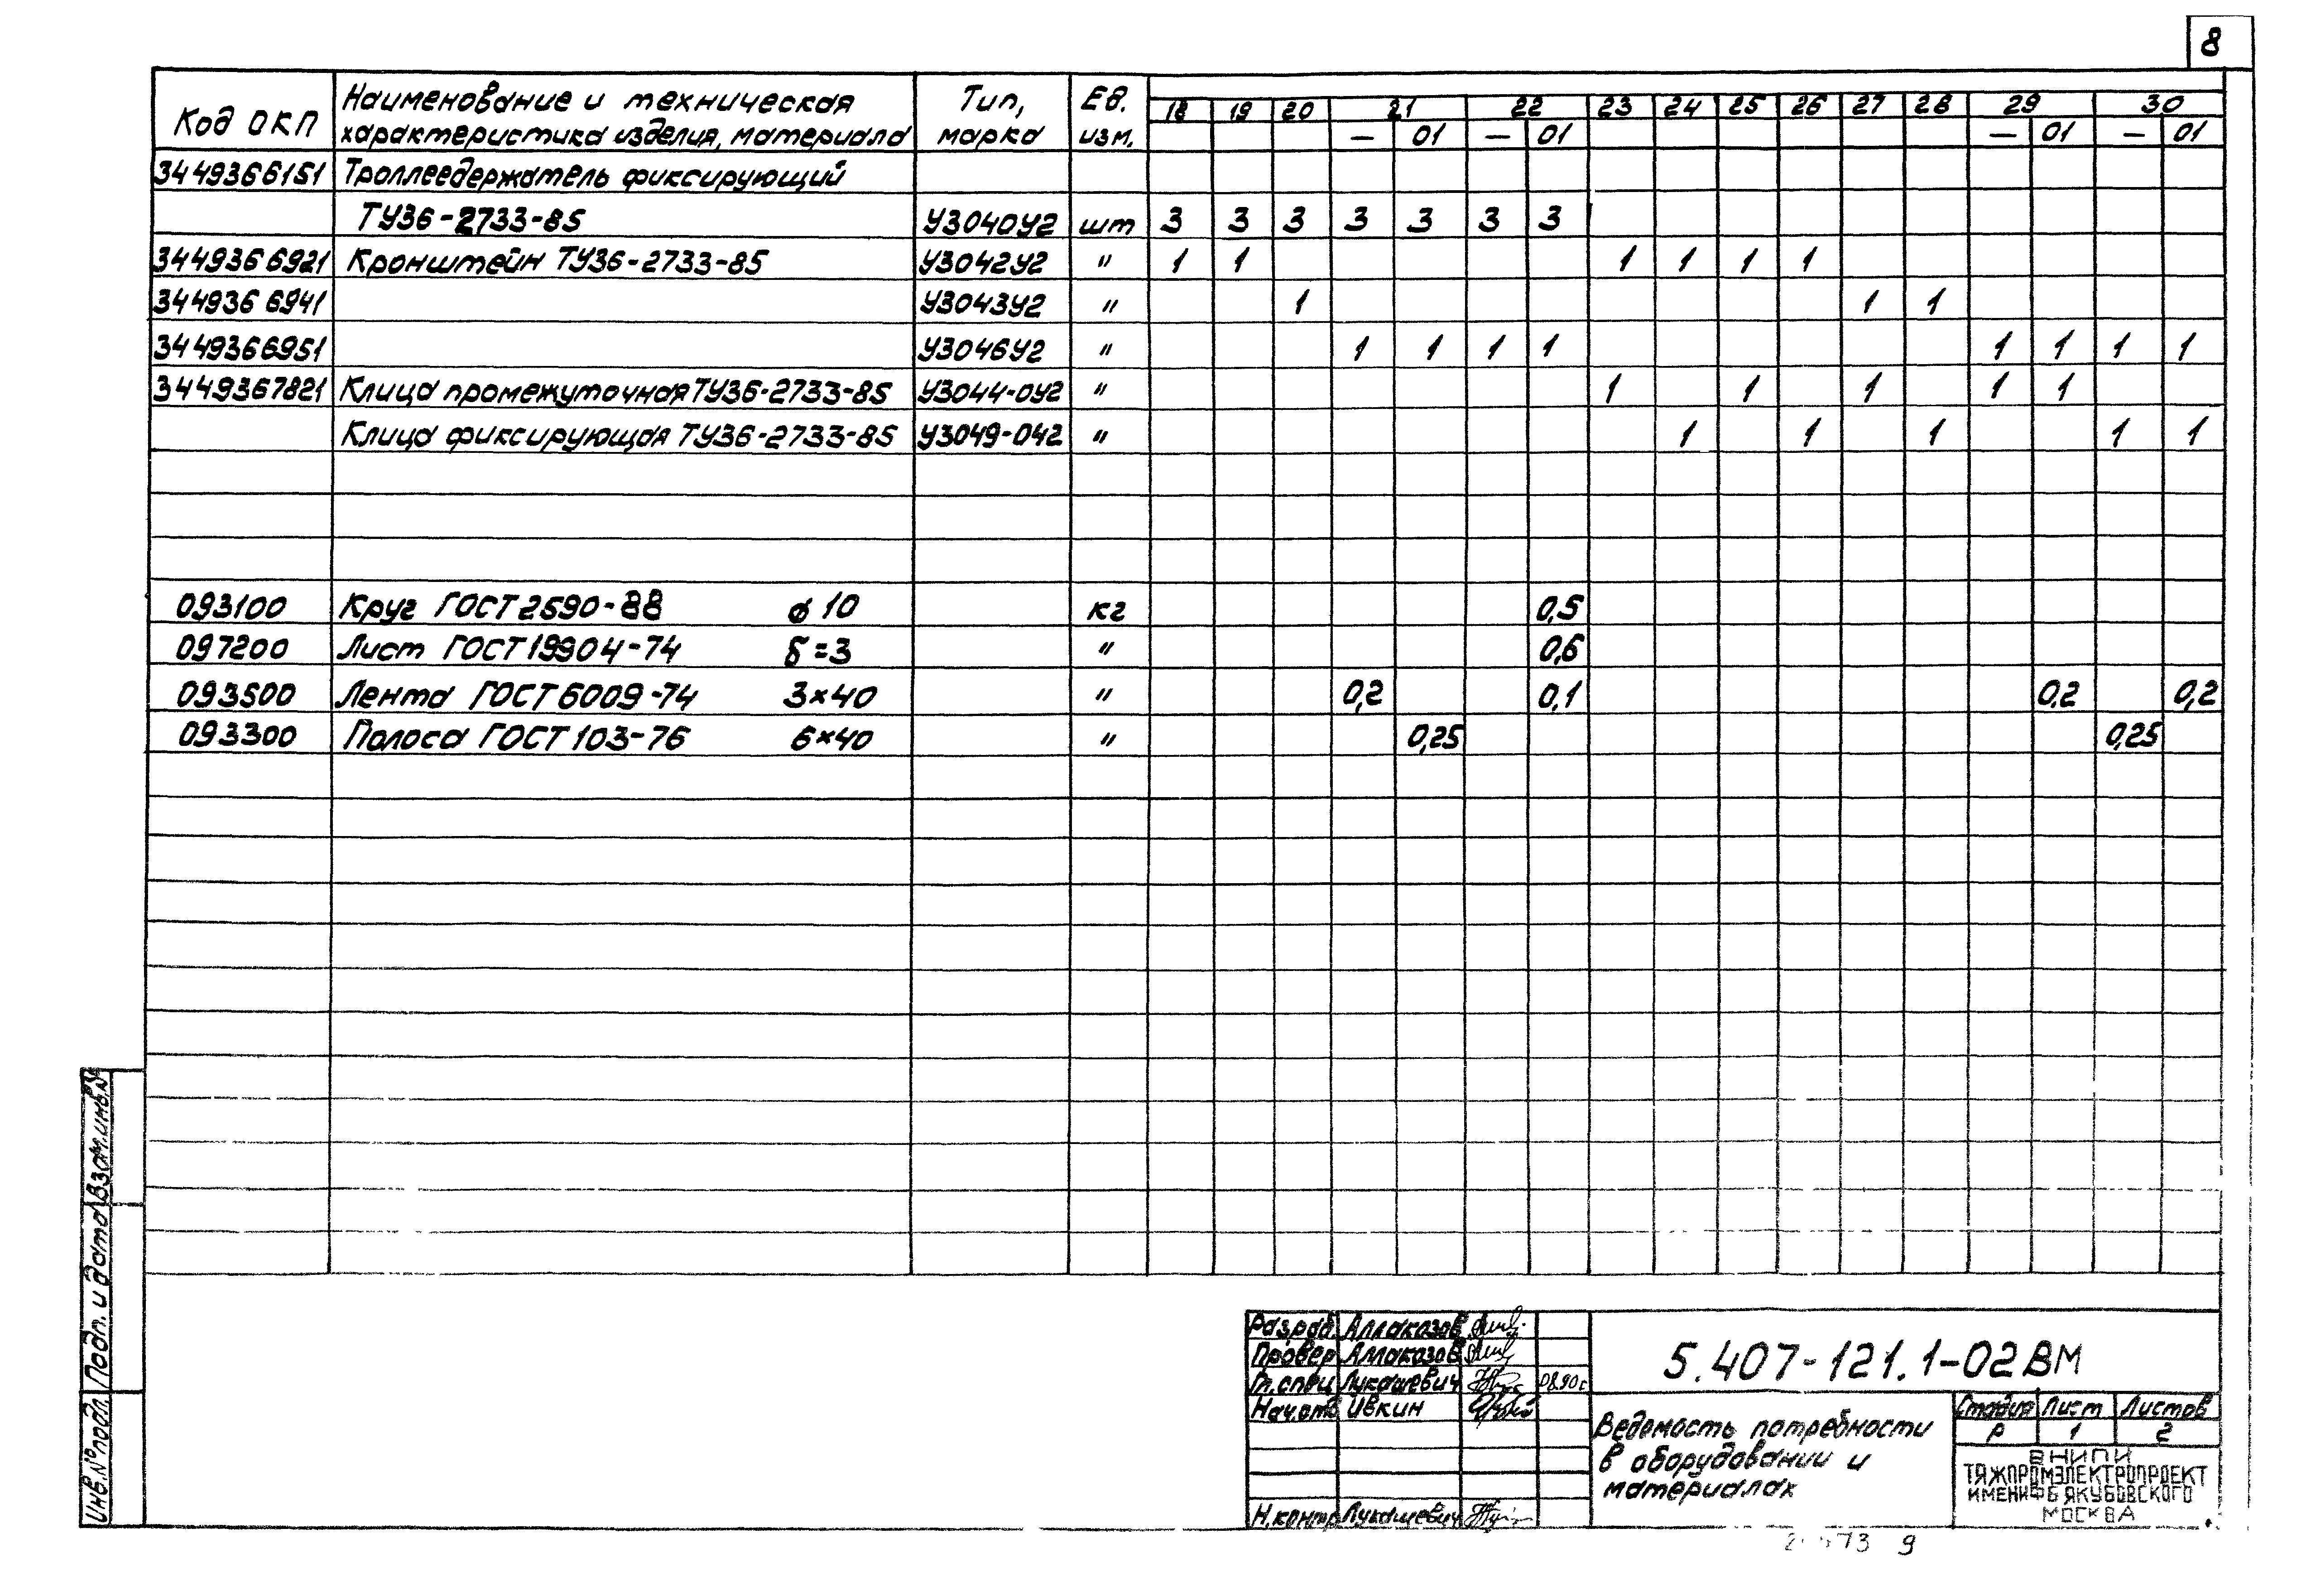 8
Код ОКП Наименование и техническая характеристика изделия, материала Тип, марка Ед. изм. 18 19 20 21 22 23 24 25 26 27 28 29 30
— 01 — 01 — 01 — 01
3449366151 Троллеедержатель фиксирующий
ТУ36-2733-85 У3040У2 шт 3 3 3 3 3 3 3
3449366921 Кронштейн ТУ36-2733-85 У3042У2 " 1 1 1 1 1 1
3449366941 У3043У2 " 1 1 1
3449366951 У3046У2 " 1 1 1 1 1 1 1 1
3449367821 Клица промежуточная ТУ36-2733-85 У3044-0У2 " 1 1 1 1 1
Клица фиксирующая ТУ36-2733-85 У3049-042 " 1 1 1 1 1
093100 Круг ГОСТ 2590-88 ø 10 кг 0,5
097200 Лист ГОСТ 19904-74 δ=3 " 0,6
093500 Лента ГОСТ 6009-74 3×40 " 0,2 0,1 0,2 0,2
093300 Полоса ГОСТ 103-76 6×40 " 0,25 0,25
Взам.инв.№
Подп. и дата
Инв.№ подл.
Разраб. Аллаказов
Провер Аллаказов
Гл.спец Лукашевич 08.90г.
Нач.отд Ивкин
Н.контр Лукашевич
5.407-121.1-02ВМ
Ведомость потребности
в оборудовании и
материалах
Стадия Лист Листов
Р 1 2
ВНИПИ
ТЯЖПРОМЭЛЕКТРОПРОЕКТ
ИМЕНИ Ф Б ЯКУБОВСКОГО
МОСКВА
9